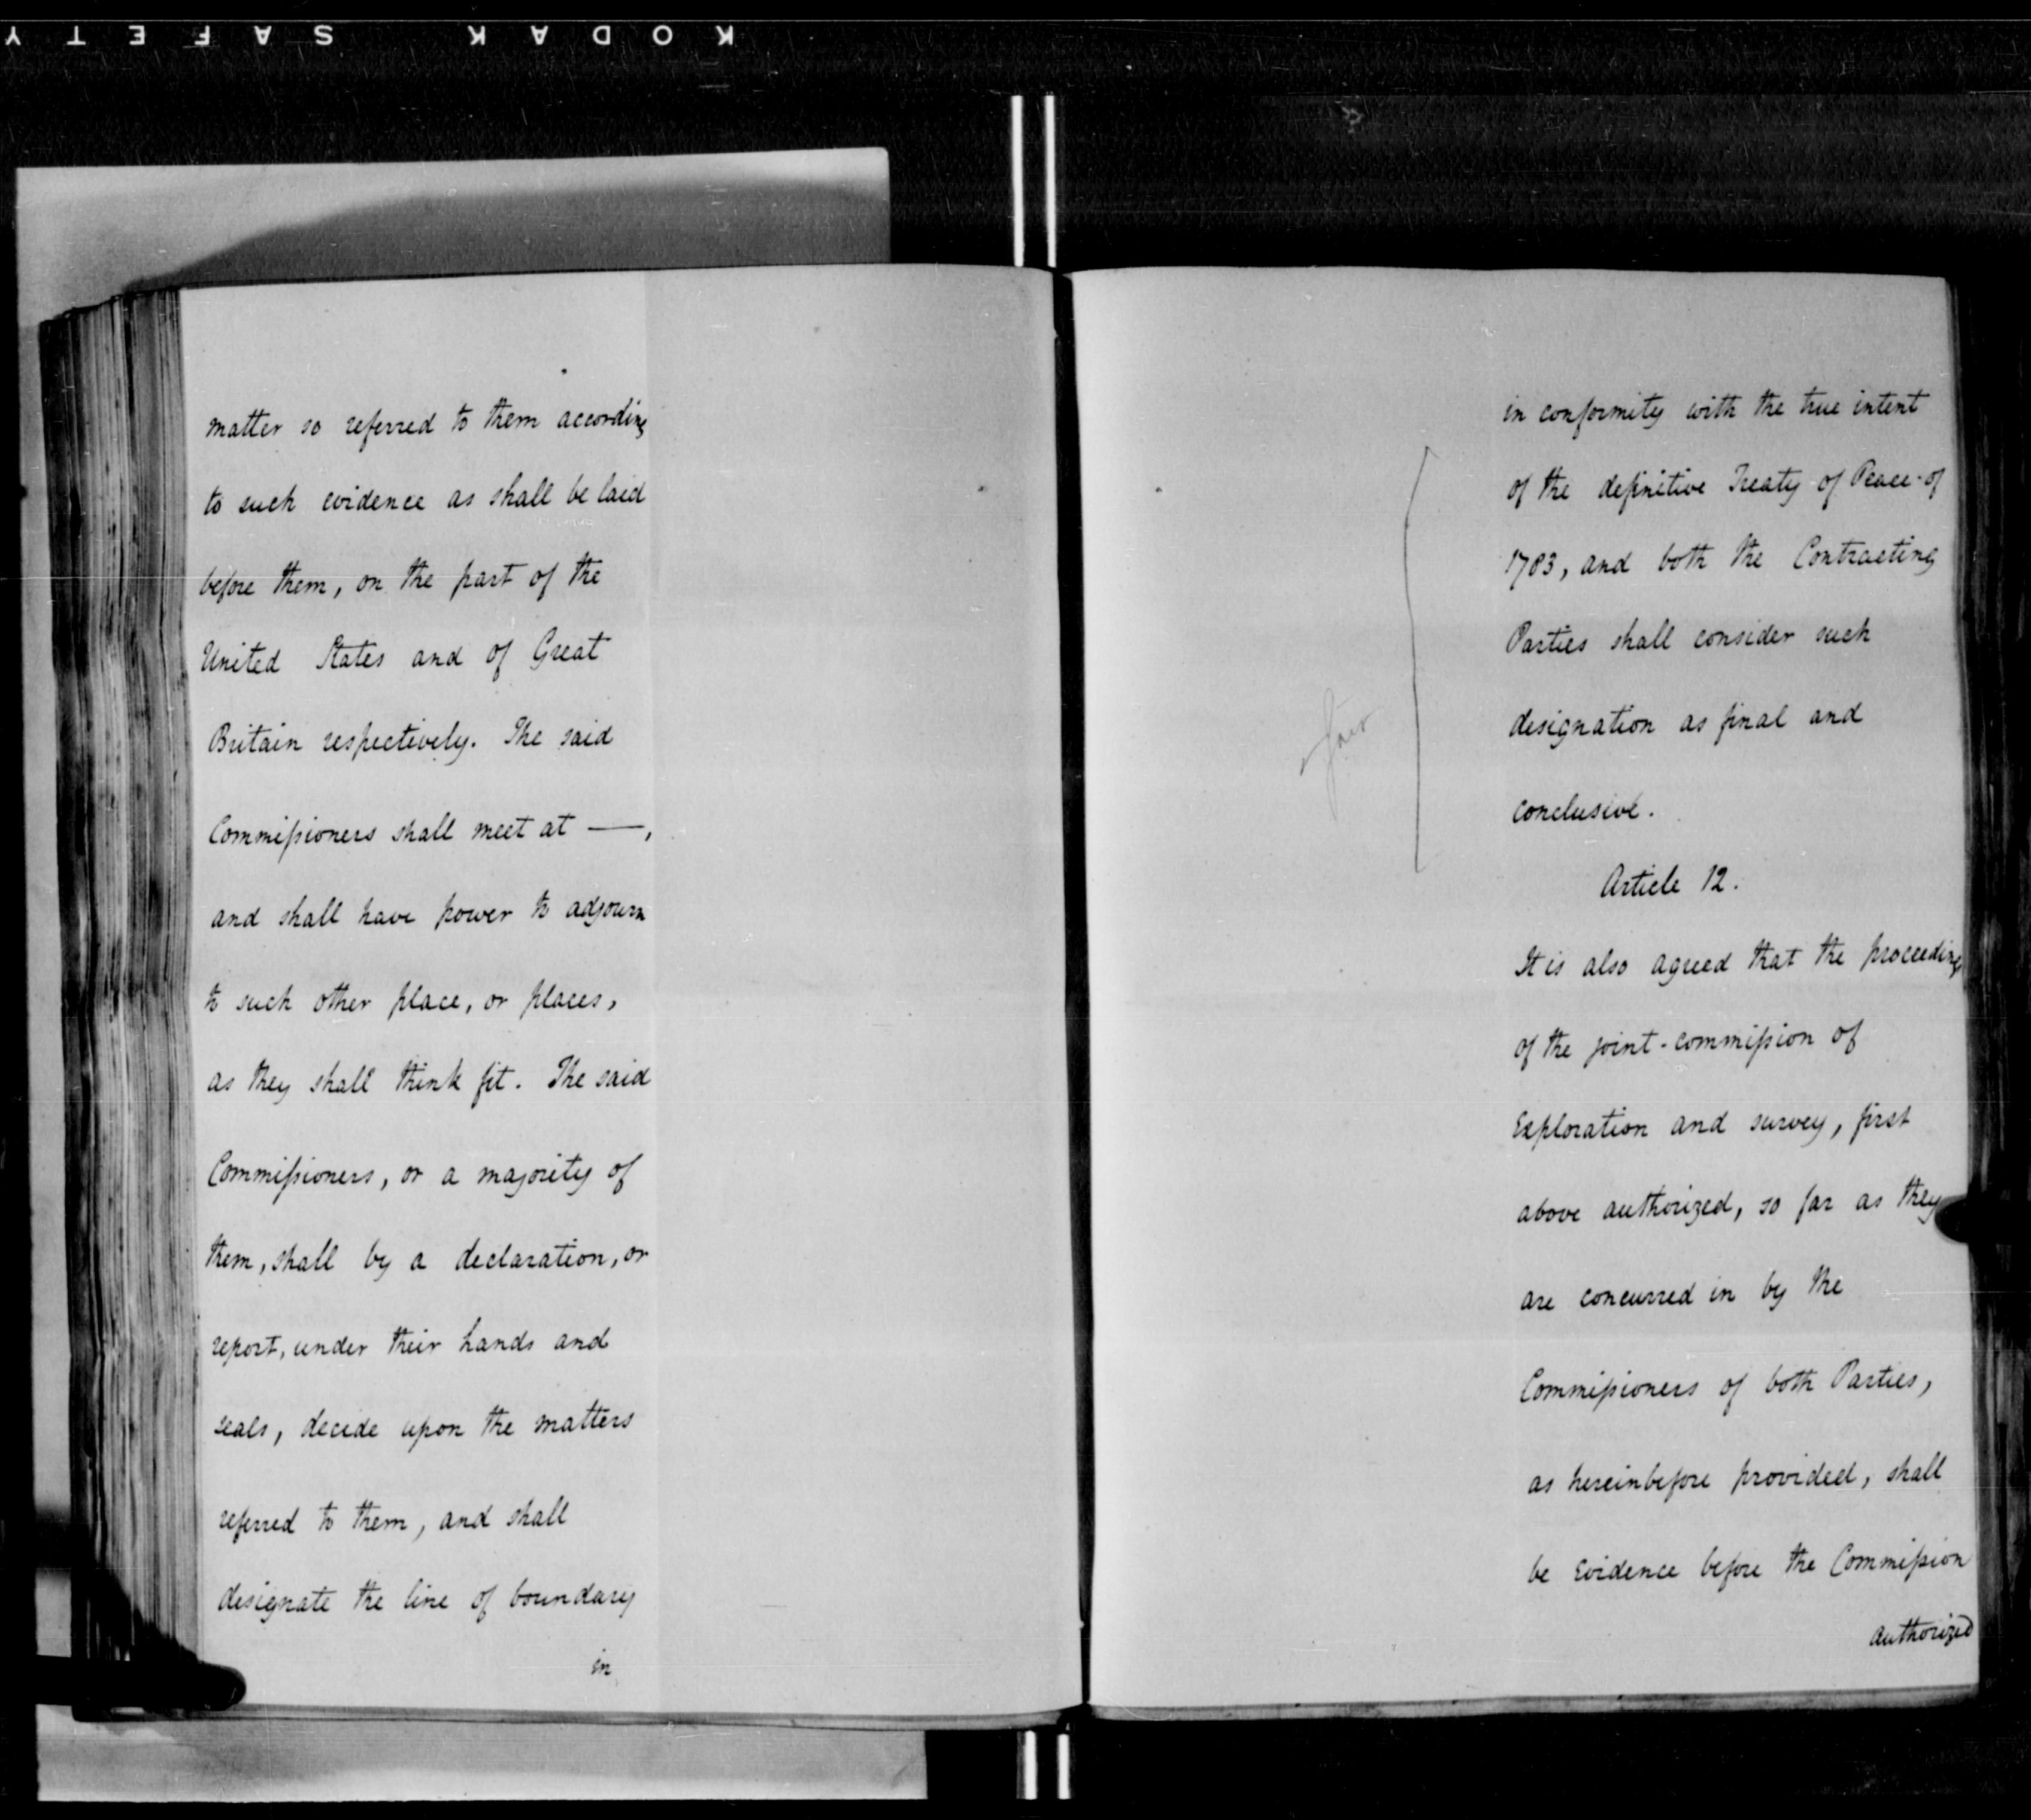 KODAK SAFETY
matter so referred to them according
to such evidence as shall be laid
before them, on the part of the
United States and of Great
Britain respectively. The said
Commissioners shall meet at —,
and shall have power to adjourn
to such other place, or places,
as they shall think fit. The said
Commissioners, or a majority of
them, shall by a declaration, or
report, under their hands and
seals, decide upon the matters
referred to them, and shall
designate the line of boundary
in
in conformity with the true intent
of the definitive Treaty of Peace of
1783, and both the Contracting
Parties shall consider such
designation as final and
conclusive.
Article 12.
It is also agreed that the proceedings
of the joint-commission of
Exploration and survey, first
above authorized, so far as they
are concurred in by the
Commissioners of both Parties,
as hereinbefore provided, shall
be Evidence before the Commission
authorized